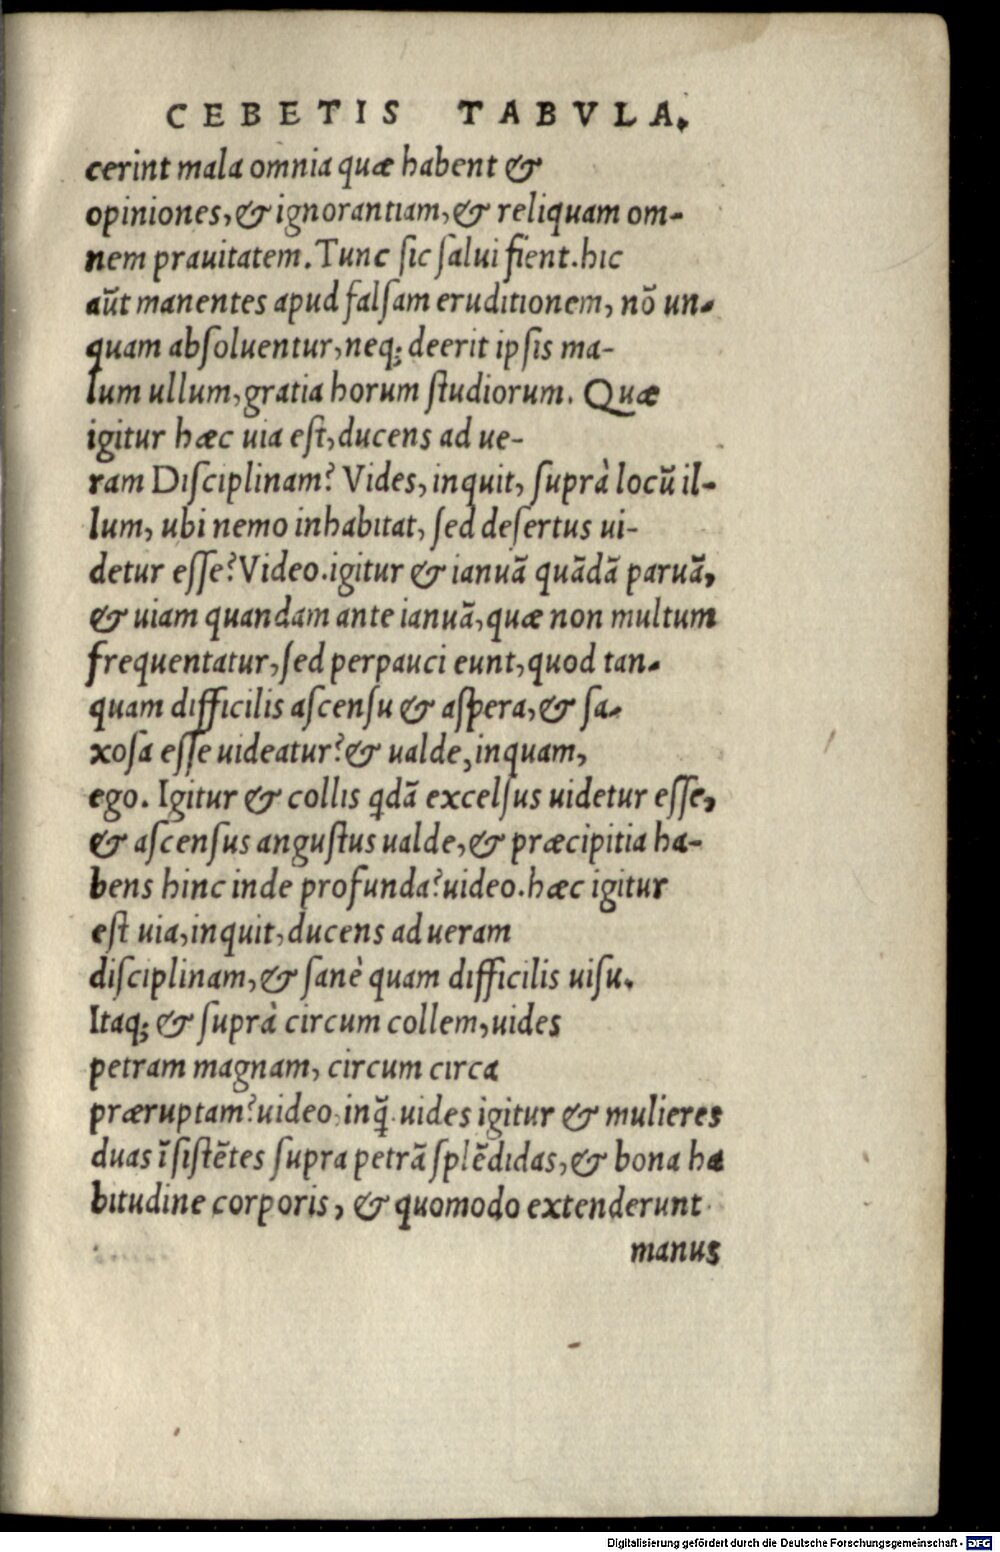 CEBETIS TABVLA.
cerint mala omnia quæ habent &
opiniones, & ignorantiam, & reliquam om-
nem prauitatem. Tunc ſic ſalui fient. hic
aūt manentes apud falſam eruditionem, nō un-
quam abſoluentur, neq; deerit ipſis ma-
lum ullum, gratia horum ſtudiorum. Quæ
igitur hæc uia eſt, ducens ad ue-
ram Diſciplinam? Vides, inquit, ſuprà locū il-
lum, ubi nemo inhabitat, ſed deſertus ui-
detur eſſe? Video. igitur & ianuā quādā paruā,
& uiam quandam ante ianuā, quæ non multum
frequentatur, ſed perpauci eunt, quod tan-
quam difficilis aſcenſu & aſpera, & ſa-
xoſa eſſe uideatur? & ualde, inquam,
ego. Igitur & collis qdā excelſus uidetur eſſe,
& aſcenſus anguſtus ualde, & præcipitia ha-
bens hinc inde profunda? uideo. hæc igitur
eſt uia, inquit, ducens ad ueram
diſciplinam, & ſanè quam difficilis uiſu.
Itaq; & ſuprà circum collem, uides
petram magnam, circum circa
præruptam? uideo, inq̄. uides igitur & mulieres
duas īſiſtētes ſupra petrā ſplēdidas, & bona ha
bitudine corporis, & quomodo extenderunt
manus
Digitalisierung gefördert durch die Deutsche Forschungsgemeinschaft - DFG